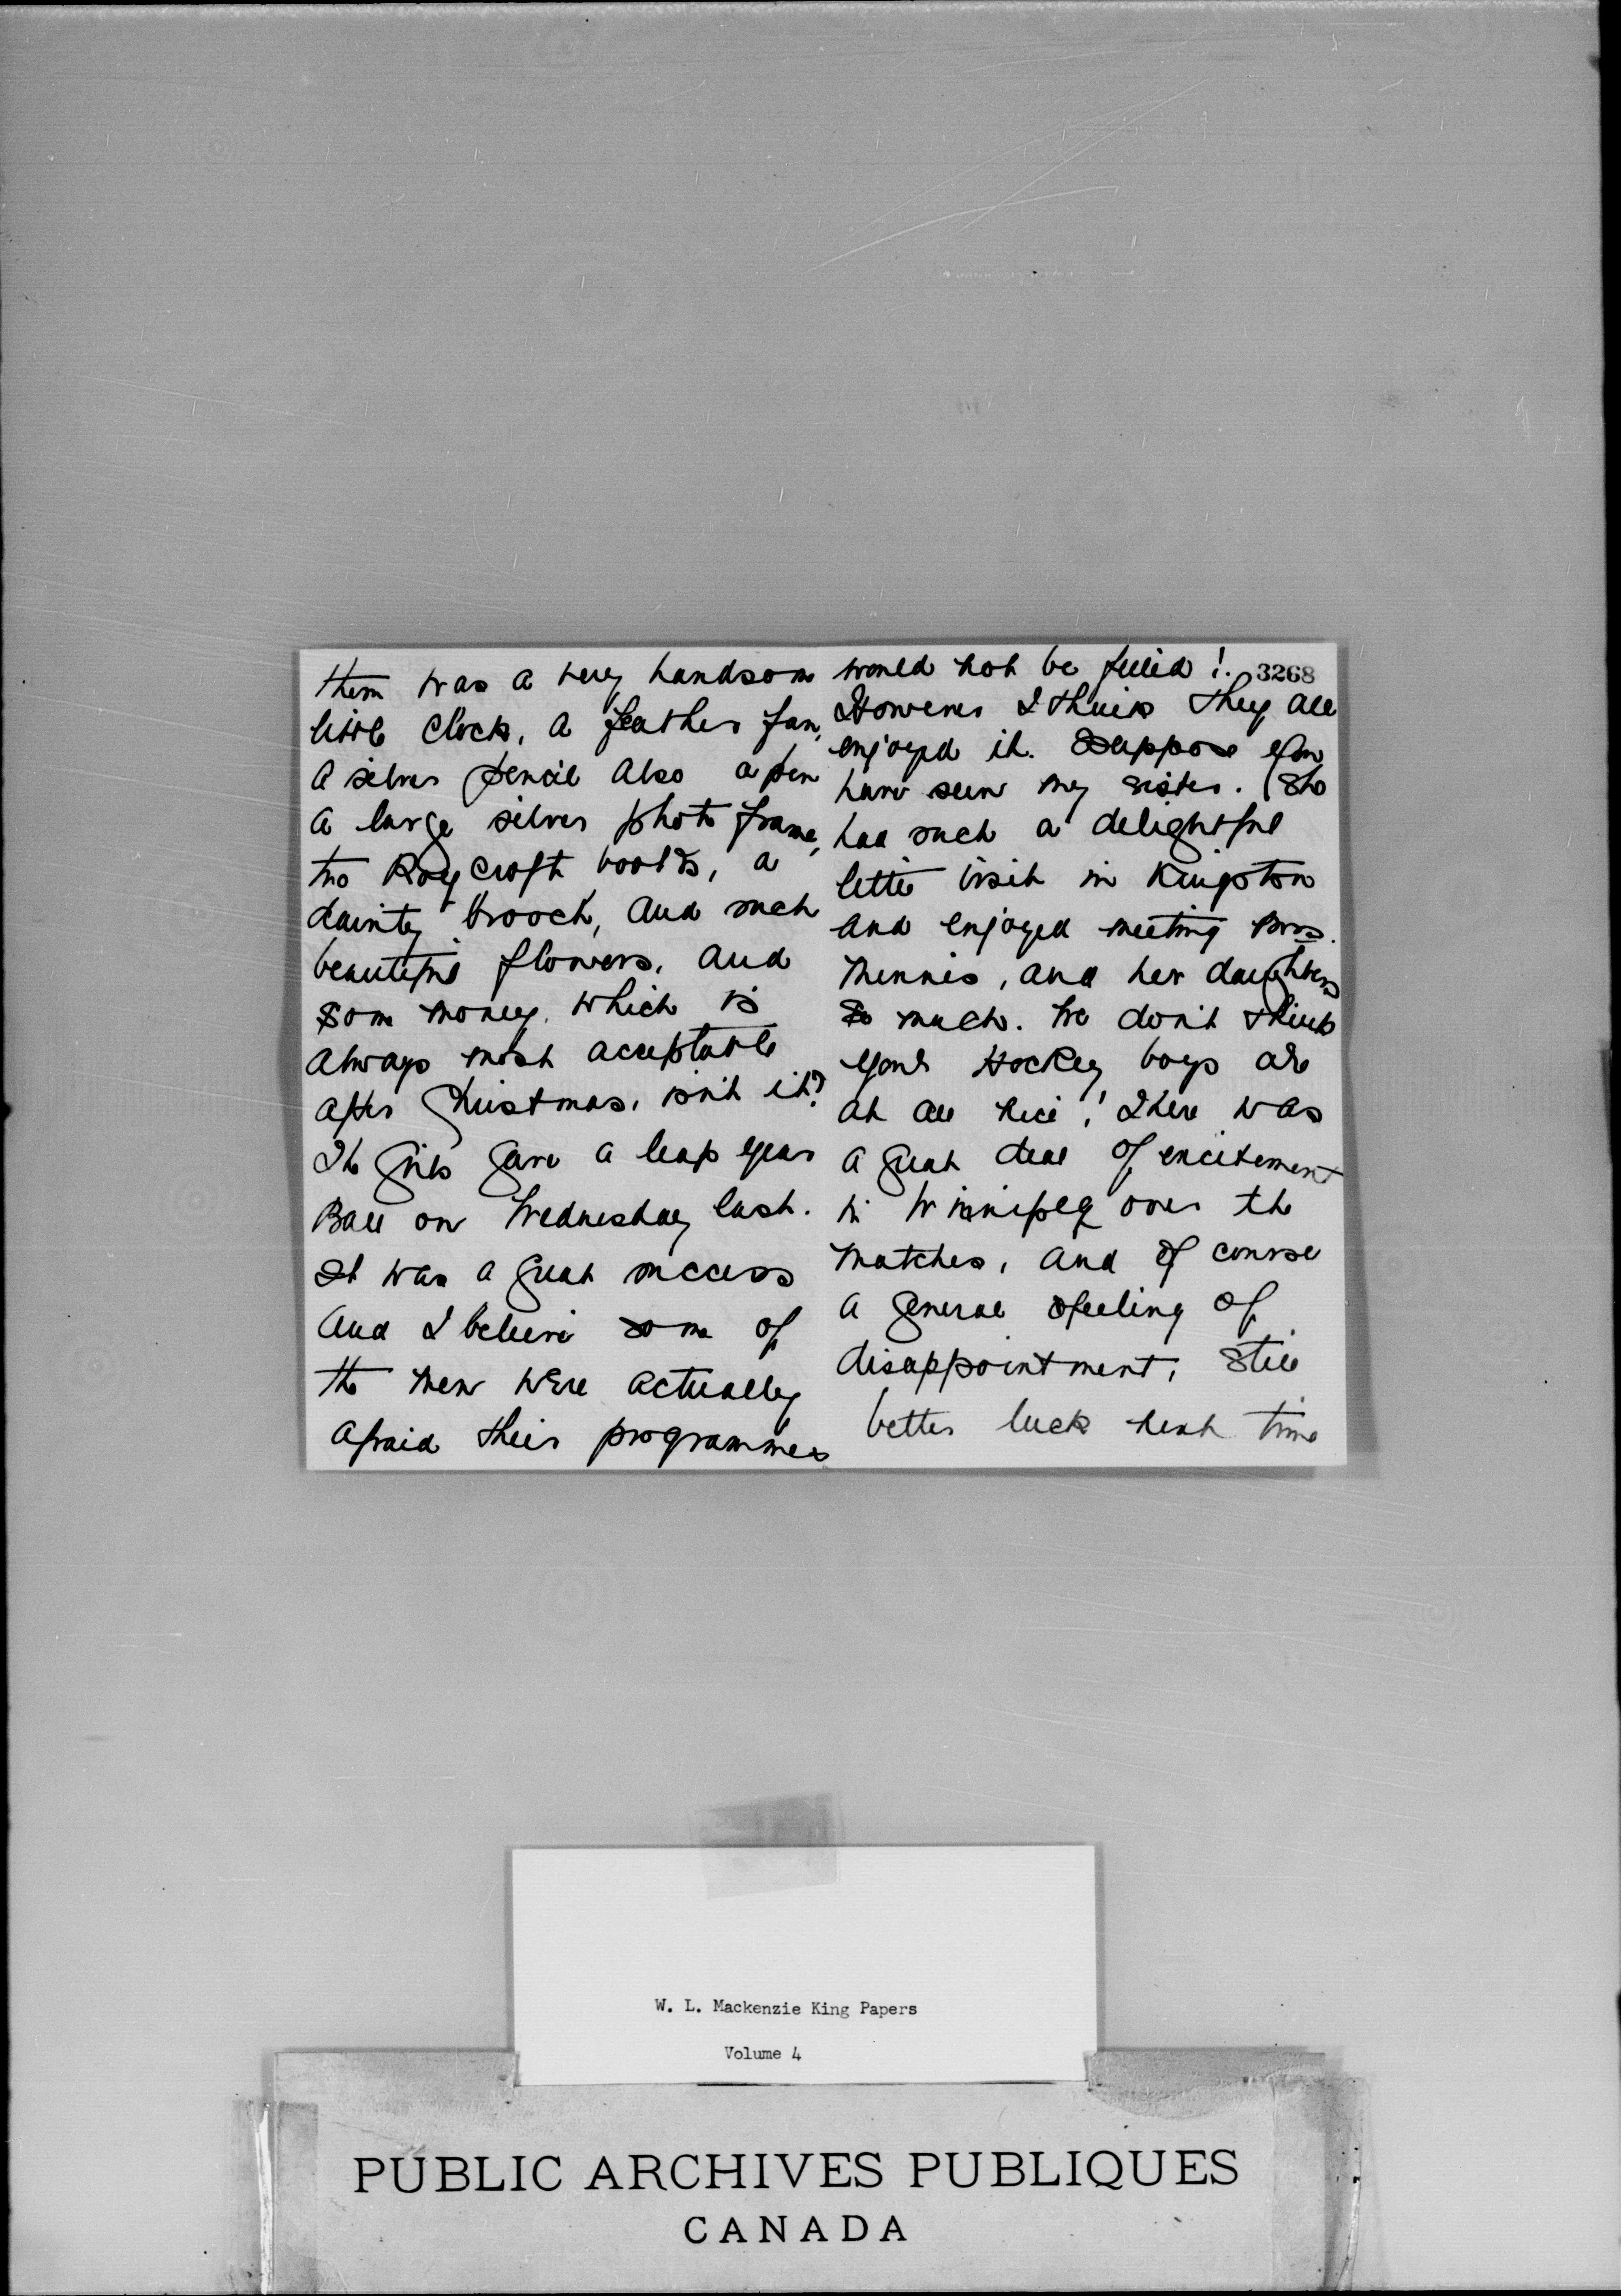 them was a very handsome
little clock, a feather fan,
a silver pencil also a pen
a large silver photo frame,
two Roycroft books, a
dainty brooch, and such
beautiful flowers, and
some money, which is
always most acceptable
after Christmas, isn't it?
The girls gave a leap year
Ball on Wednesday last.
It was a great success
and I believe some of
the men were actually
afraid their programmes
would not be filled!
3268
However I think they all
enjoyed it. Suppose you
have seen my sister. She
had such a delightful
little visit in Kingston
and enjoyed meeting Mrs.
and her daughters
so much. We don't think
your Hockey boys are
at all nice! There was
a great deal of excitement
in Winnipeg over the
matches, and of course
a general feeling of
disappointment, still
better luck next time
W. L. Mackenzie King Papers
Volume 4
PUBLIC ARCHIVES PUBLIQUES
CANADA